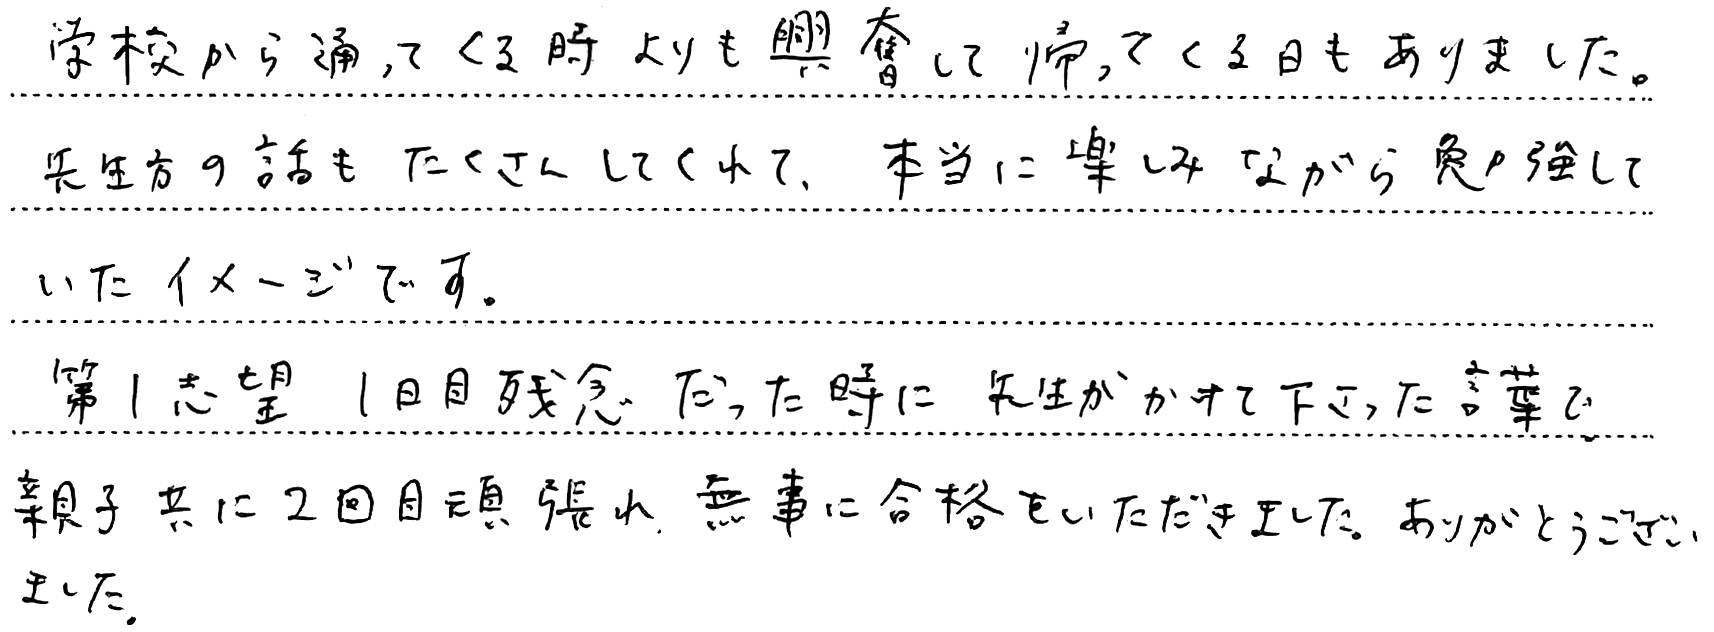 学校から通ってくる時よりも興奮して帰ってくる日もありました。
先生方の話もたくさんしてくれて、本当に楽しみながら勉強して
いたイメージです。
第1志望1日目残念だった時に先生がかけて下さった言葉で
親子共に2回目頑張れ、無事に合格をいただきました。ありがとうござい
ました。